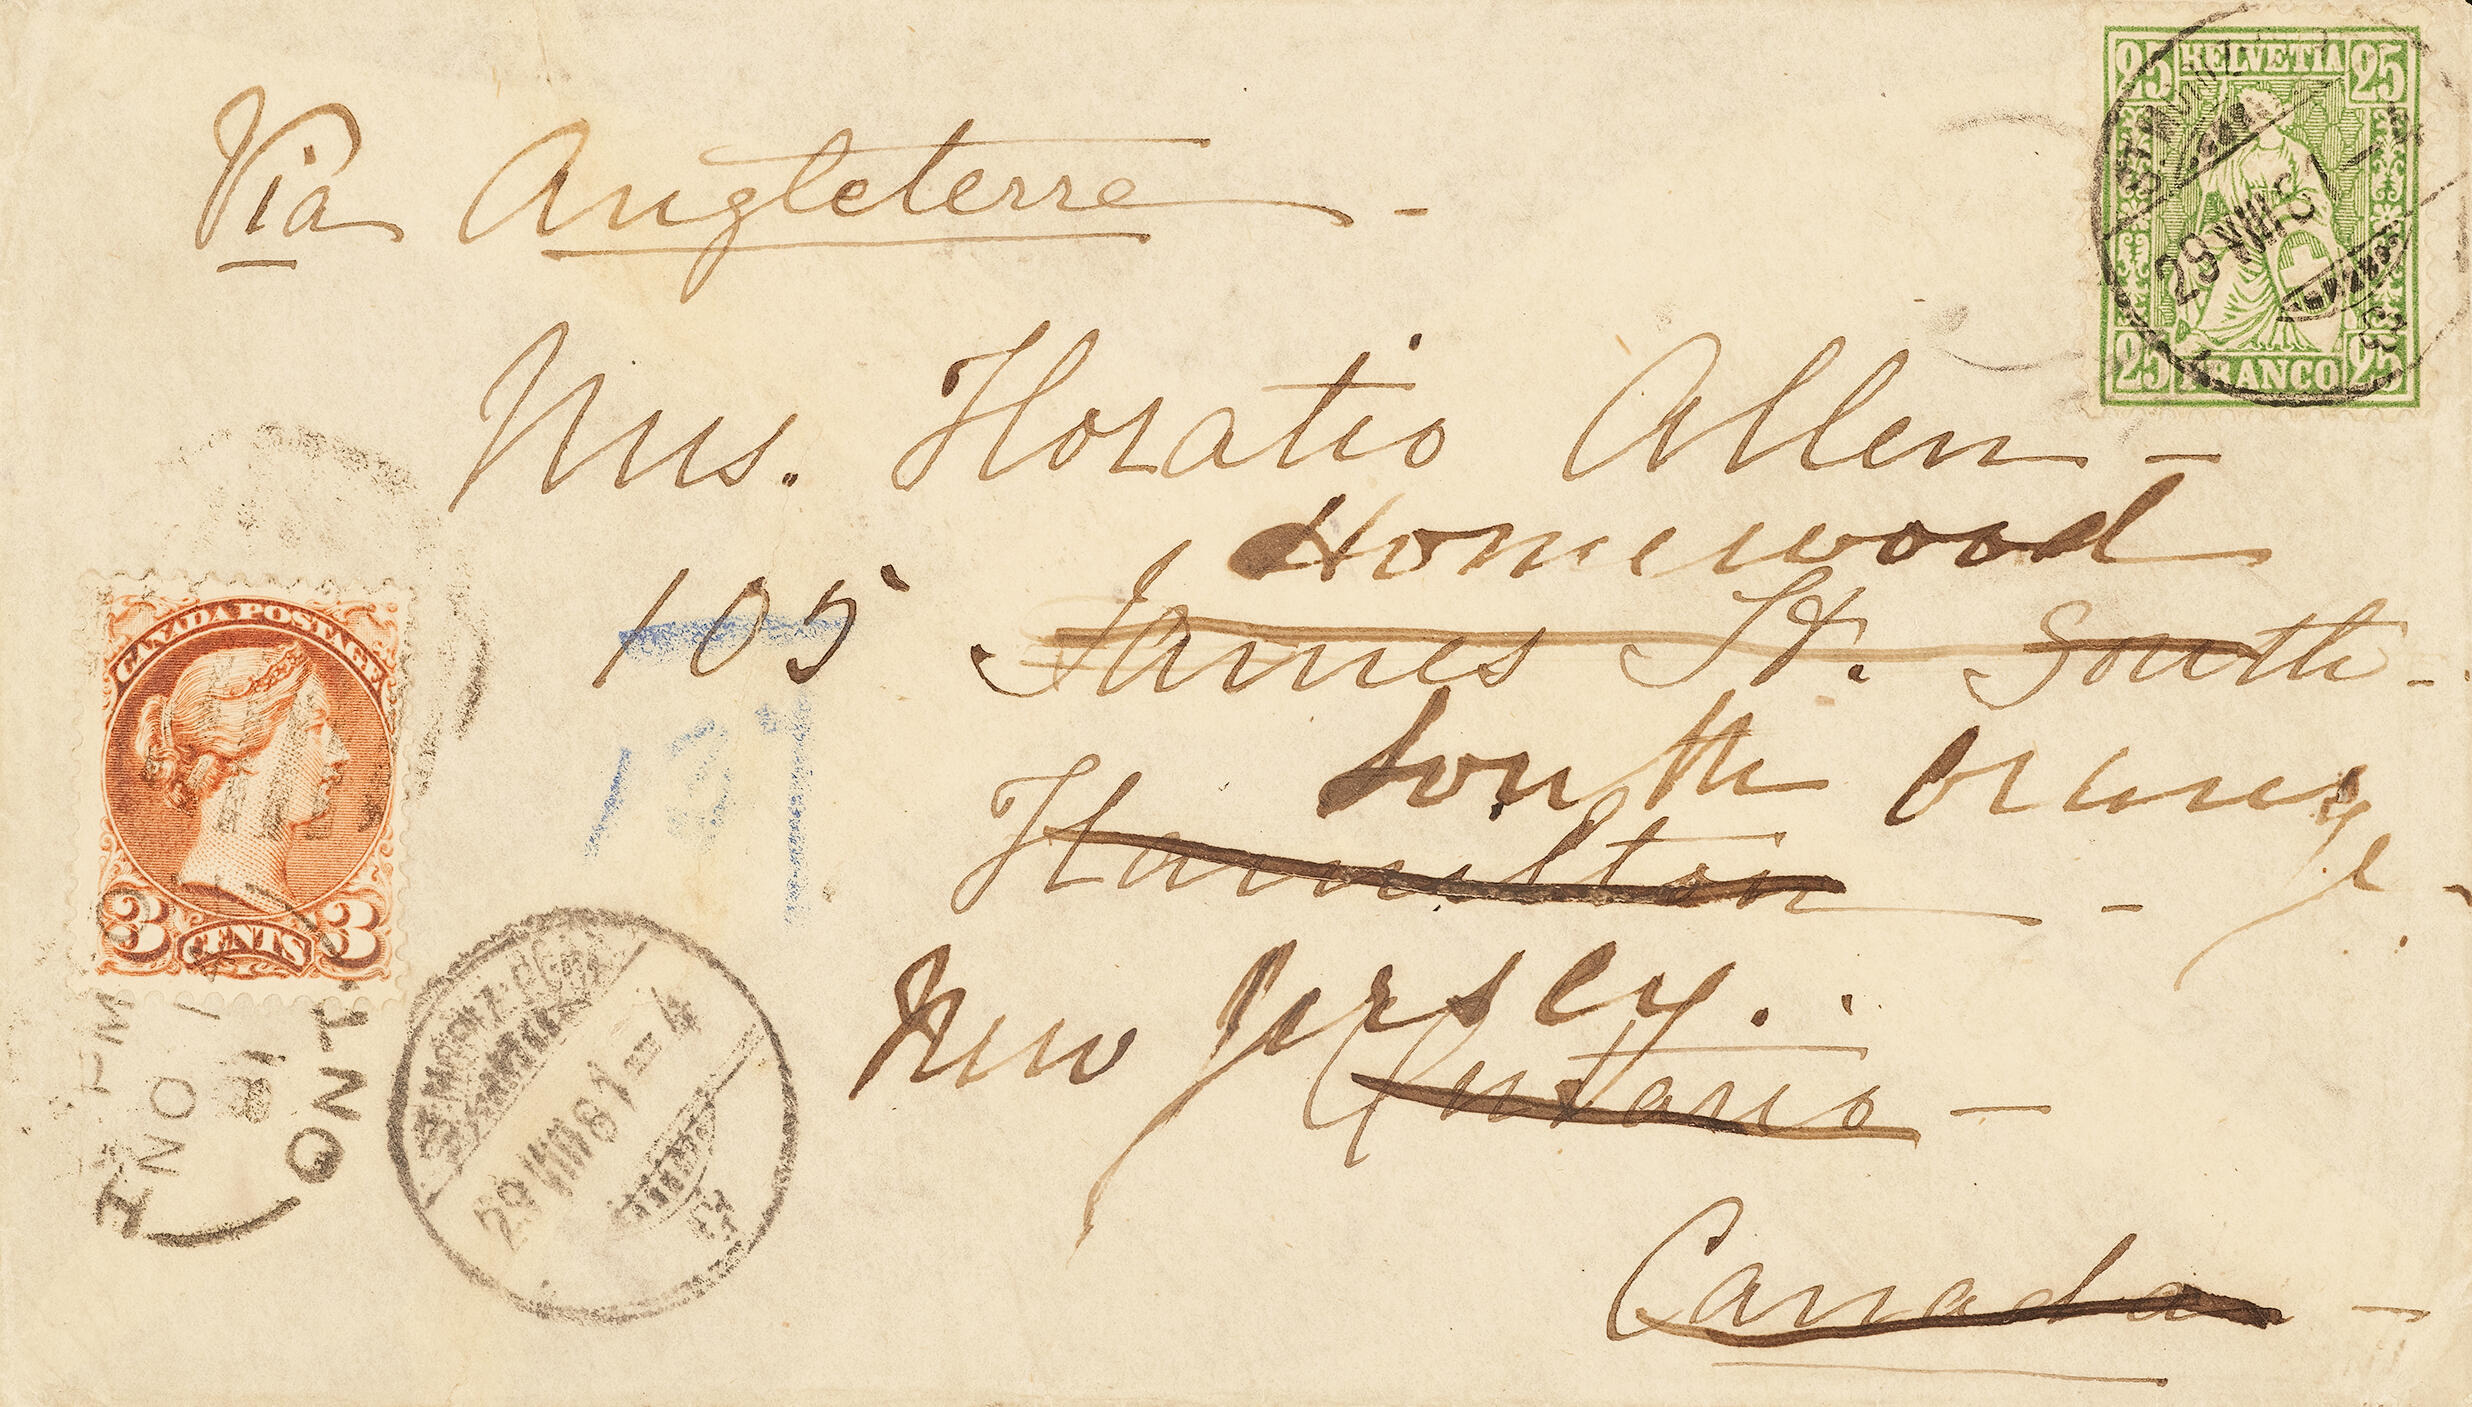 25 HELVETIA 25
Via Angleterre -
29 VIII 81
25 FRANCO 25
Mrs. Horatio Allen -
Homewood
105 James St. South -
137
South Orange -
Hamilton - -
New Jersey.
Ontario -
Canada -
CANADA POSTAGE
3 CENTS 3
PM
NO 1
81
ONT
29 VIII 81 - 4